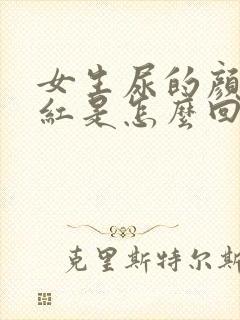 女生尿的顏
紅是怎麼回
克里斯特尔斯